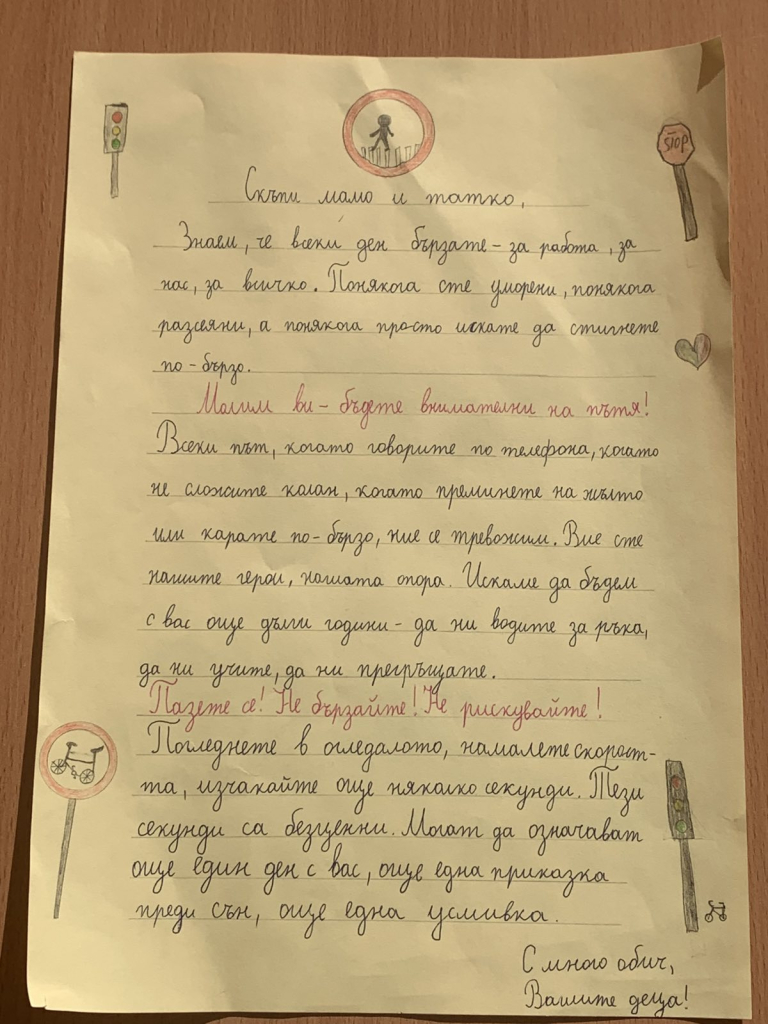 STOP
Скъпи мамо и татко,
Знаем, че всеки ден бързате - за работа, за
нас, за всичко. Понякога сте уморени, понякога
разсеяни, а понякога просто искате да стигнете
по-бързо.
Молим ви - бъдете внимателни на пътя!
Всеки път, когато говорите по телефона, когато
не сложите колан, когато преминете на жълто
или карате по-бързо, ние се тревожим. Вие сте
нашите герои, нашата опора. Искаме да бъдем
с вас още дълги години - да ни водите за ръка,
да ни учите, да ни прегръщате.
Пазете се! Не бързайте! Не рискувайте!
Погледнете в огледалото, намалете скорост-
та, изчакайте още няколко секунди. Тези
секунди са безценни. Могат да означават
още един ден с вас, още една приказка
преди сън, още една усмивка.
С много обич,
Вашите деца!